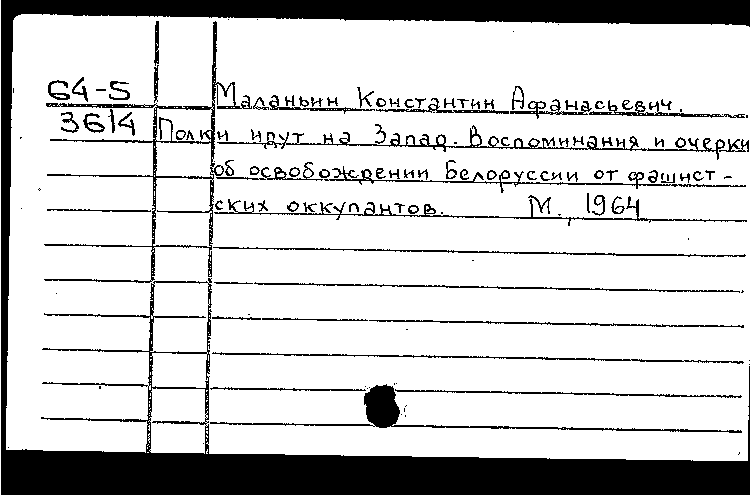 64-5 Маланьин, Константин Афанасьевич.
3614 Полки идут на Запад. Воспоминания и очерки
об освобождении Белоруссии от фашист-
ских оккупантов. М., 1964